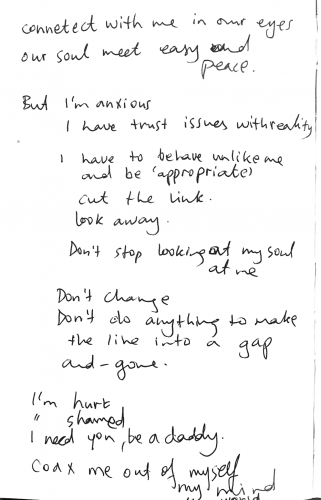 connetect with me in our eyes
our soul meet easy and
peace.
But I'm anxious
I have trust issues with reality
I have to behave unlike me
and be 'appropriate'
cut the link.
look away.
Don't stop looking at my soul
at me
Don't change
Don't do anything to make
the line into a gap
and - gone.
I'm hurt
" shamed
I need you, be a daddy.
Coax me out of myself
my mind
world